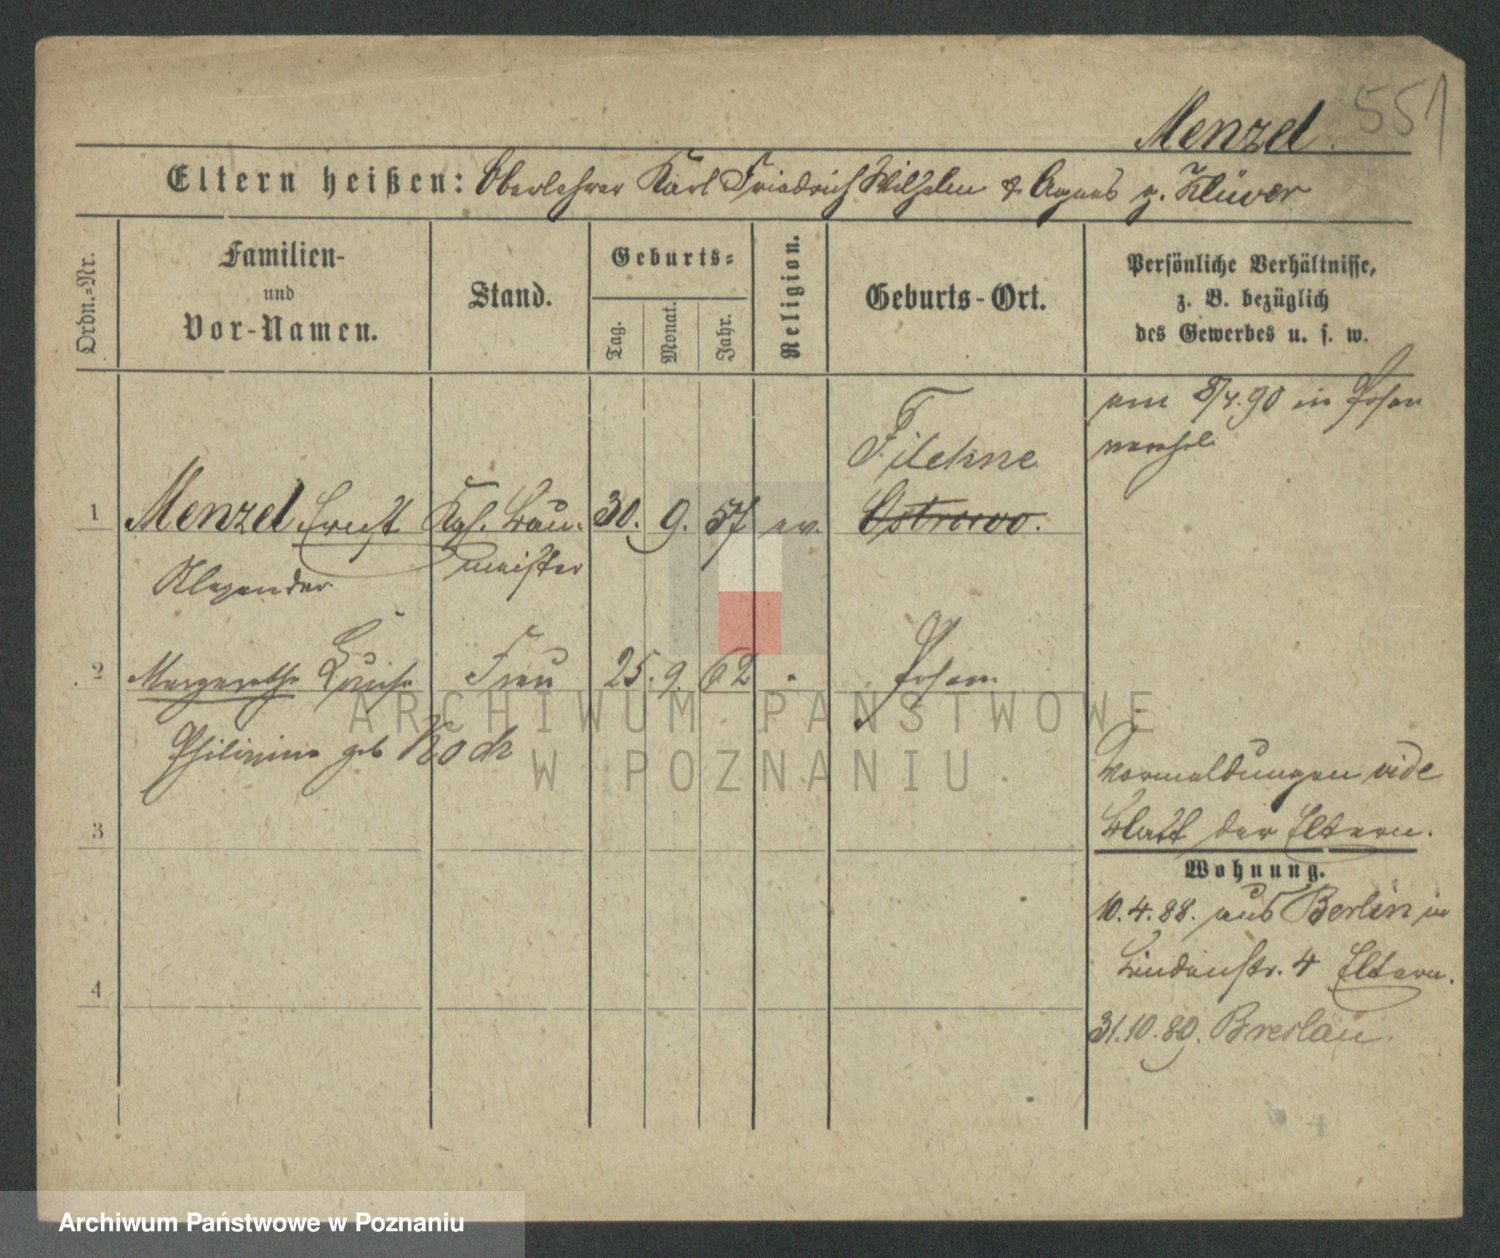 551
Menzel.
Eltern heißen: Oberlehrer Karl Friedrich Wilhelm & Agnes g. Klüver
Ordn.-Nr.
Familien-
und
Vor-Namen.
Stand.
Geburts-
Tag.
Monat.
Jahr.
Religion.
Geburts-Ort.
Persönliche Verhältnisse,
z. B. bezüglich
des Gewerbes u. s. w.
am 8/4.90 in Posen
verehel.
Filehne
1 Menzel Ernst Kgl. Bau- 30. 9. 57 ev. Ostrowo.
Alexander meister
2 Margarethe Louise Frau 25. 9. 62 Posen
geb Koch
Vormeldungen vide
Blatt der Eltern.
3
Wohnung.
10.4.88. aus Berlin in
Lindenstr. 4 Eltern.
4
31.10.89. Breslau.
ARCHIWUM PAŃSTWOWE
W POZNANIU
Archiwum Państwowe w Poznaniu